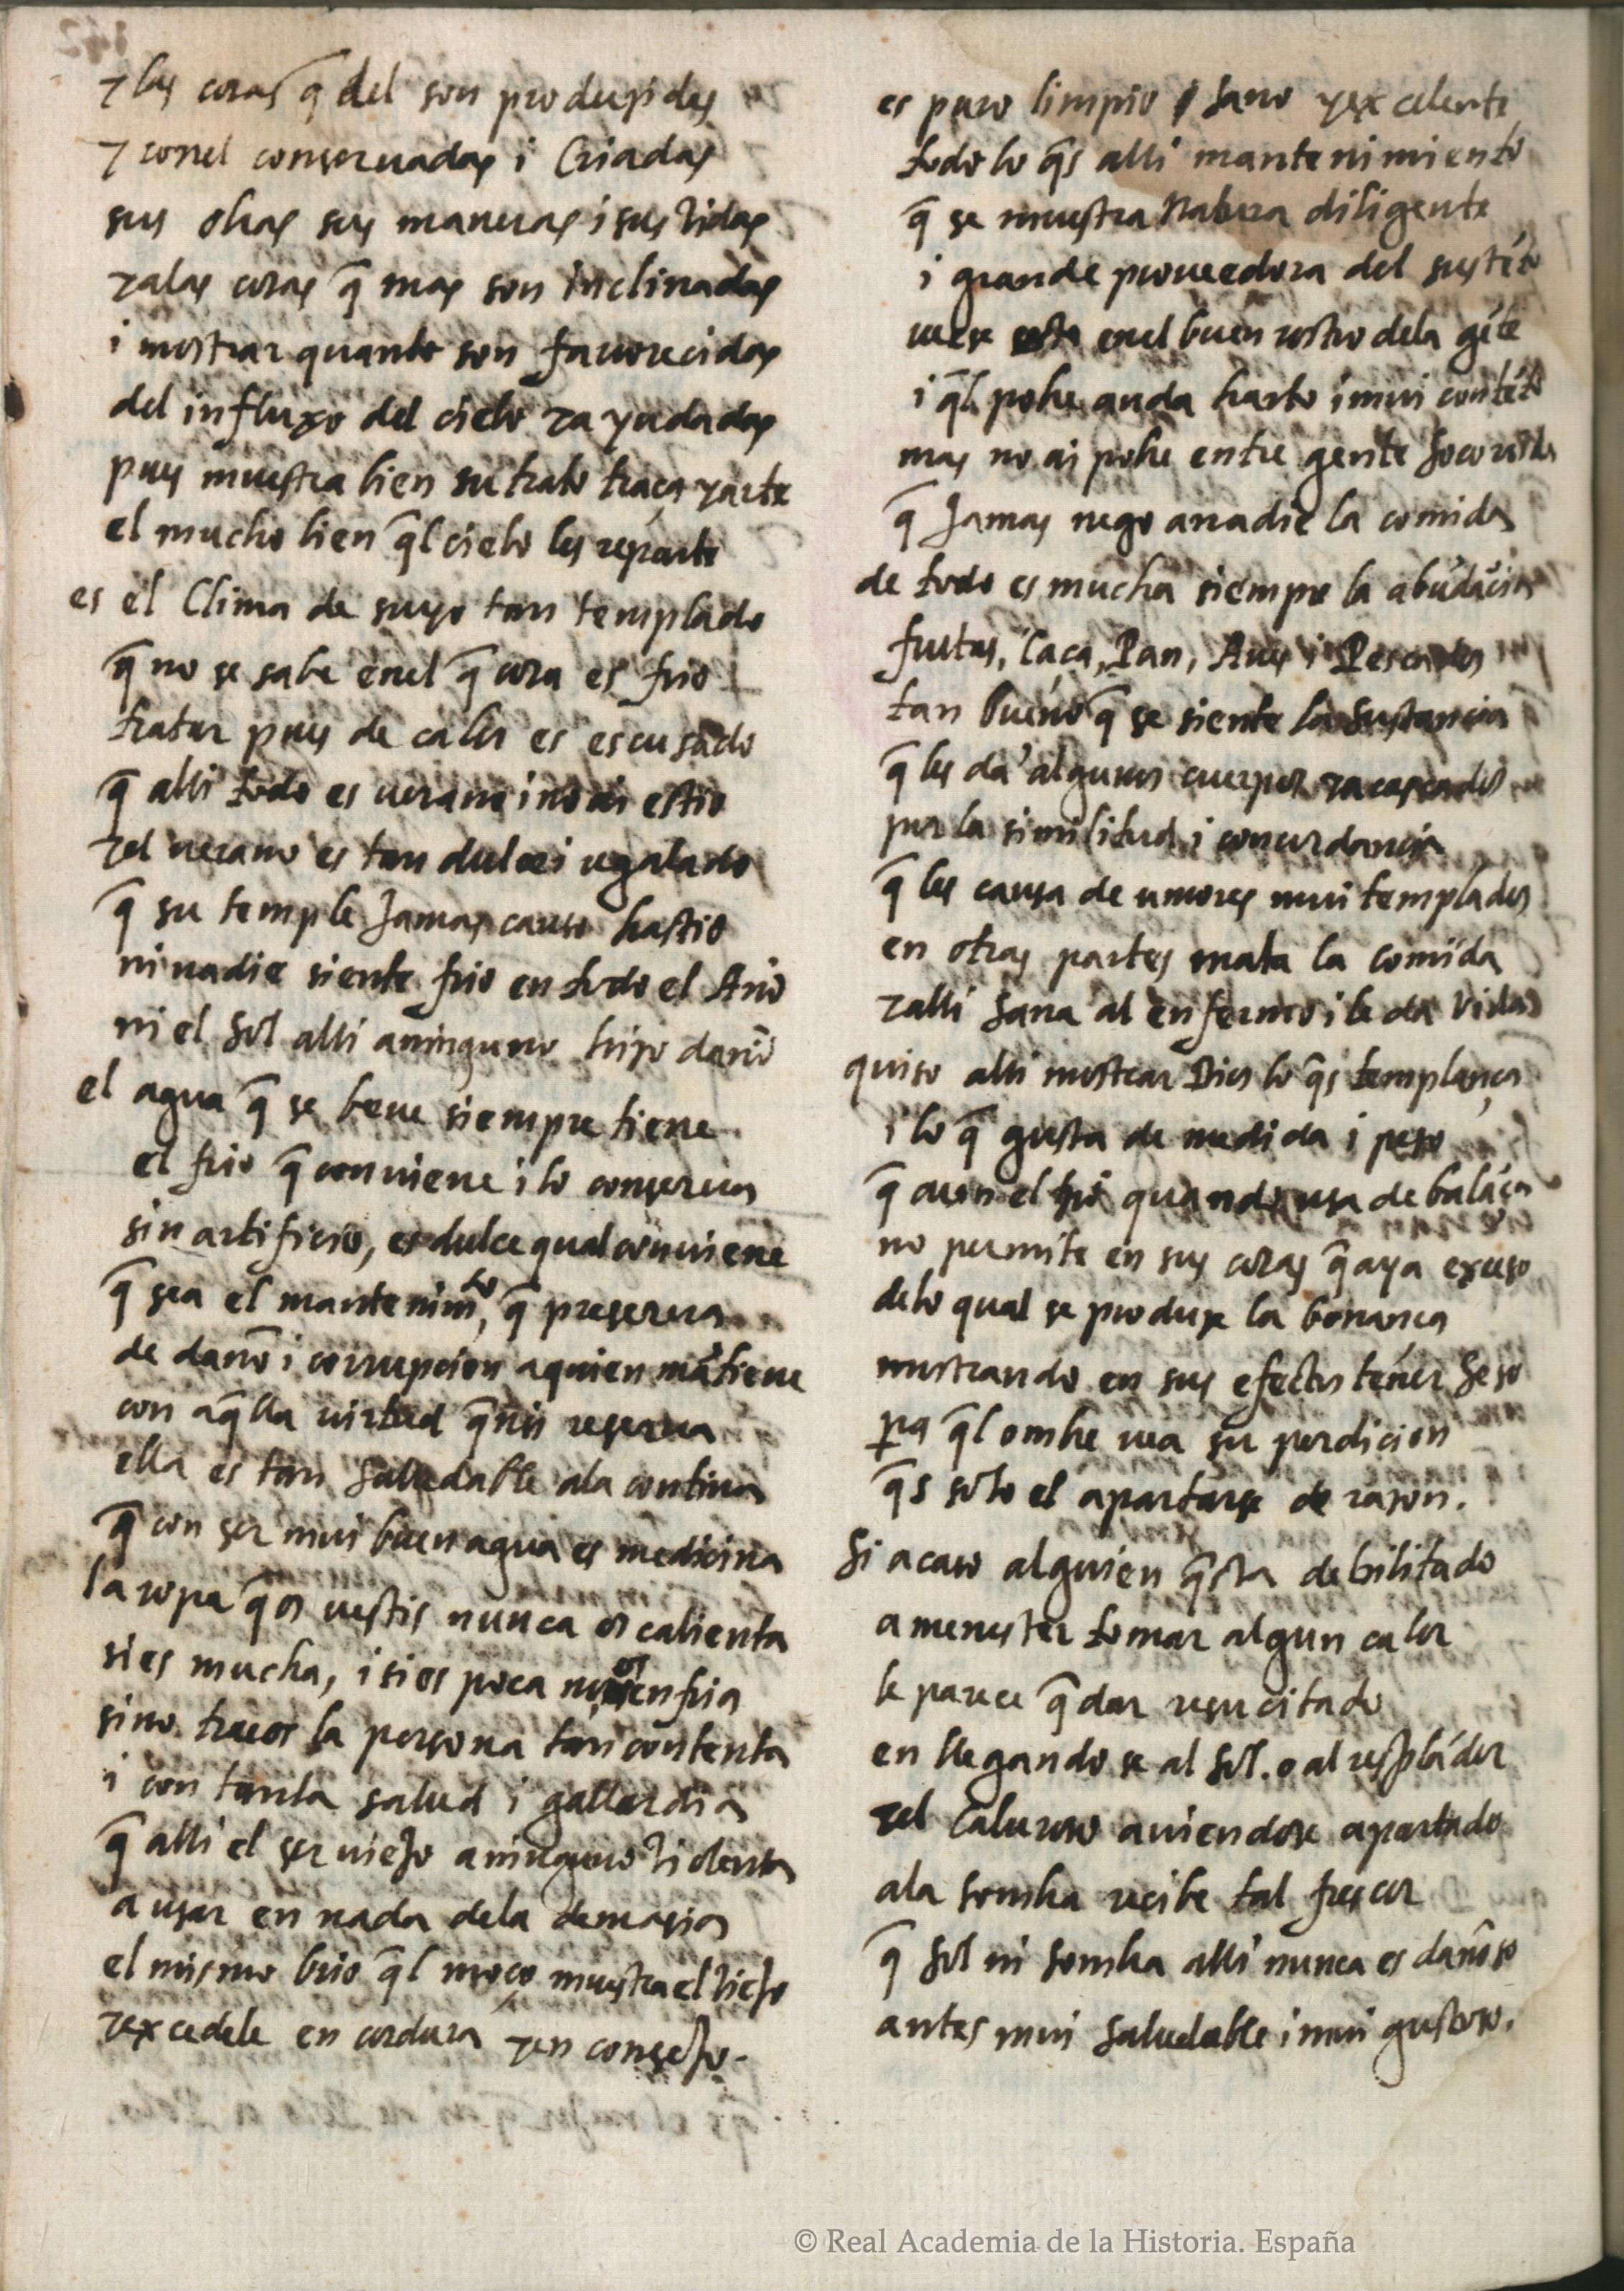 y las cosas q̃ del son produzidas
y conel conseruadas i Criadas
sus obras sus maneras i sus vidas
y alas cosas q̃ mas son inclinadas
i mostrar quanto son fauorecidas
del influxo del cielo y ayudadas
pues muestra bien su trato traça y arte
el mucho bien q̃l cielo les reparte
es el Clima de suyo tan templado
q̃ no se sabe enel q̃ cosa es frio
tratar pues de calor es escusado
q̃ alli todo es uerano i no ai estio
y el uerano es tan dulce i regalado
q̃ su temple Jamas causo hastio
ni nadie siente frio en todo el Año
ni el Sol alli aninguno hizo daño
el agua q̃ se beue siempre tiene
el frio q̃ conuiene i lo conserua
sin artificio, es dulce qual conuiene
q̃ sea el mantenimto, q̃ preserua
de daño i corrupcion aquien mãtiene
con aq̃lla uirtud q̃nsi reserua
ella es tan saludable ala contina
q̃ con ser mui buen agua es medicina
la ropa q̃ os uestis nunca os calienta
si es mucha, i si es poca no os enfria
sino traeos la persona tan contenta
i con tanta salud i gallardia
q̃ alli el ser uiejo aninguno violenta
a usar en nada dela demasia
el mismo brio q̃l moço muestra el viejo
y excedele en cordura y en consejo.
es puro limpio sano y excelente
todo lo q̃s alli mantenimiento
q̃ se muestra Natura diligente
i grande proueedora del sustẽto
uese esto enel buen rostro dela gẽte
i q̃l pobre anda harto i mui contẽto
mas no ai pobre entre gente socorrida
q̃ Jamas nego anadie la comida
de todo es mucha siempre la abũdãcia
frutas, Caça, Pan, Aues i Pescados
tan bueno q̃ se siente la Sustancia
q̃ les da algunos cuerpos ya cascados
por la similitud i concordancia
q̃ les causa de umores mui templados
en otras partes mata la comida
y alli sana al enfermo i le da vida
quiso alli mostrar Dios lo q̃s templança
i lo q̃ gusta de medida i peso
q̃ aun el frio quando usa de balãça
no permite en sus cosas q̃ aya exceso
delo qual se produze la bonança
mostrando en sus efectos tener seso
pa q̃l ombre uea su perdicion
q̃s solo el apartarse de razon.
Si acaso alguien q̃sta debilitado
a menester tomar algun calor
le parece q̃dar resucitado
en llegandose al sol. o al resplãdor
y el Caluroso auiendose apartado
ala sombra recibe tal frescor
q̃ sol ni sombra alli nunca es dañoso
antes mui saludable i mui gustoso.
© Real Academia de la Historia. España